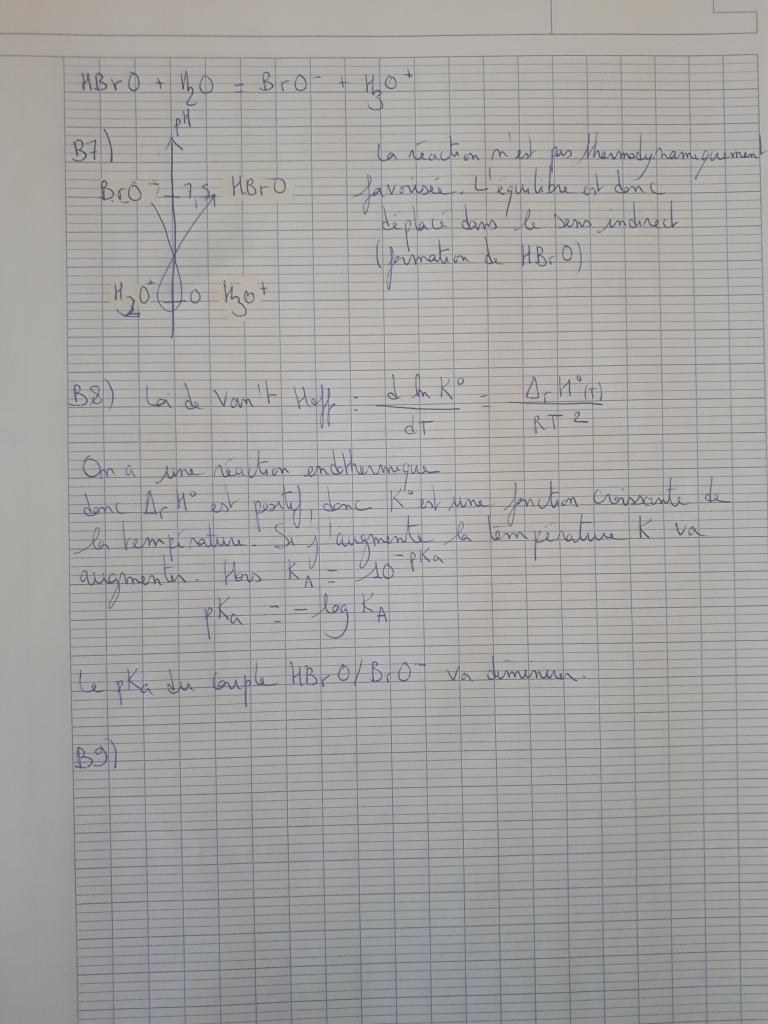 HBrO + H2O = BrO⁻ + H3O⁺
pH
B7)
BrO⁻ 7,5 HBrO
H2O⁺ 0 H3O⁺
La réaction n'est pas thermodynamiquement
favorisée. L'équilibre est donc
déplacé dans le sens indirect
(formation de HBrO)
B8) Loi de Van't Hoff : d ln K° / dT = ΔrH°(T) / RT²
On a une réaction endothermique
donc ΔrH° est positif, donc K° est une fonction croissante de
la température. Si j'augmente la température K va
augmenter. Hors KA = 10^-pKa
pKa = - log KA
Le pKa du couple HBrO/BrO⁻ va diminuer.
B9)